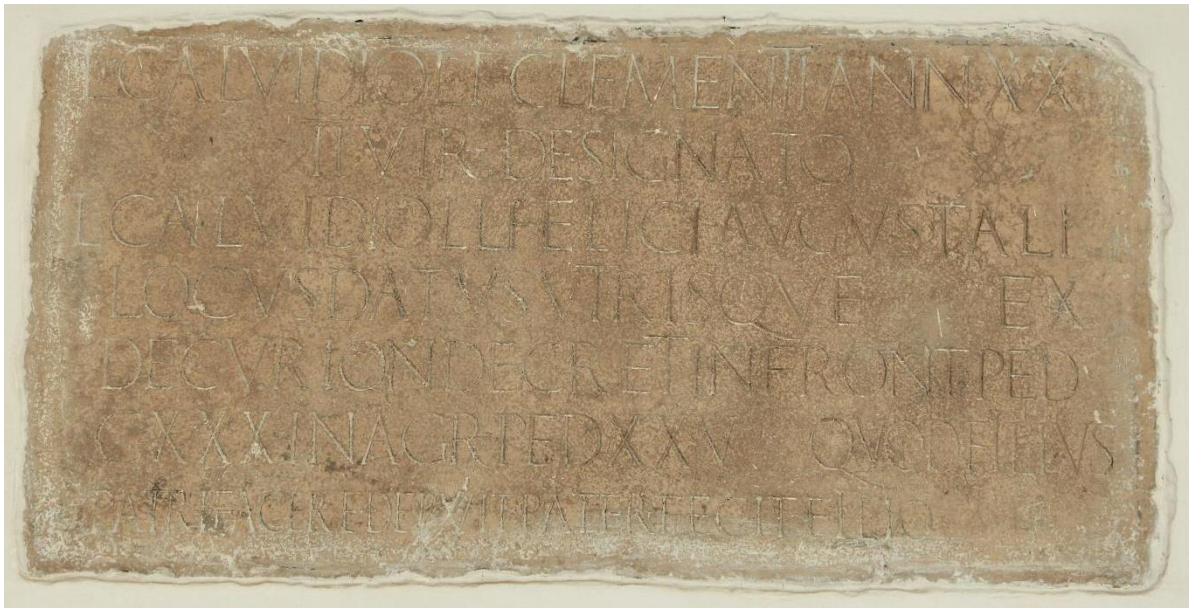 L CALVIDIO L F CLEMENTI ANN XX
II VIR DESIGNATO
L CALVIDIO L L FELICI AUGUSTALI
LOCVS DATVS VTRISQVE EX
DECVRION DECRET IN FRONT PED
CXXX IN AGR PED XXV QVOD FILIVS
PATRI FACERE DEBVIT PATER FECIT FILIO